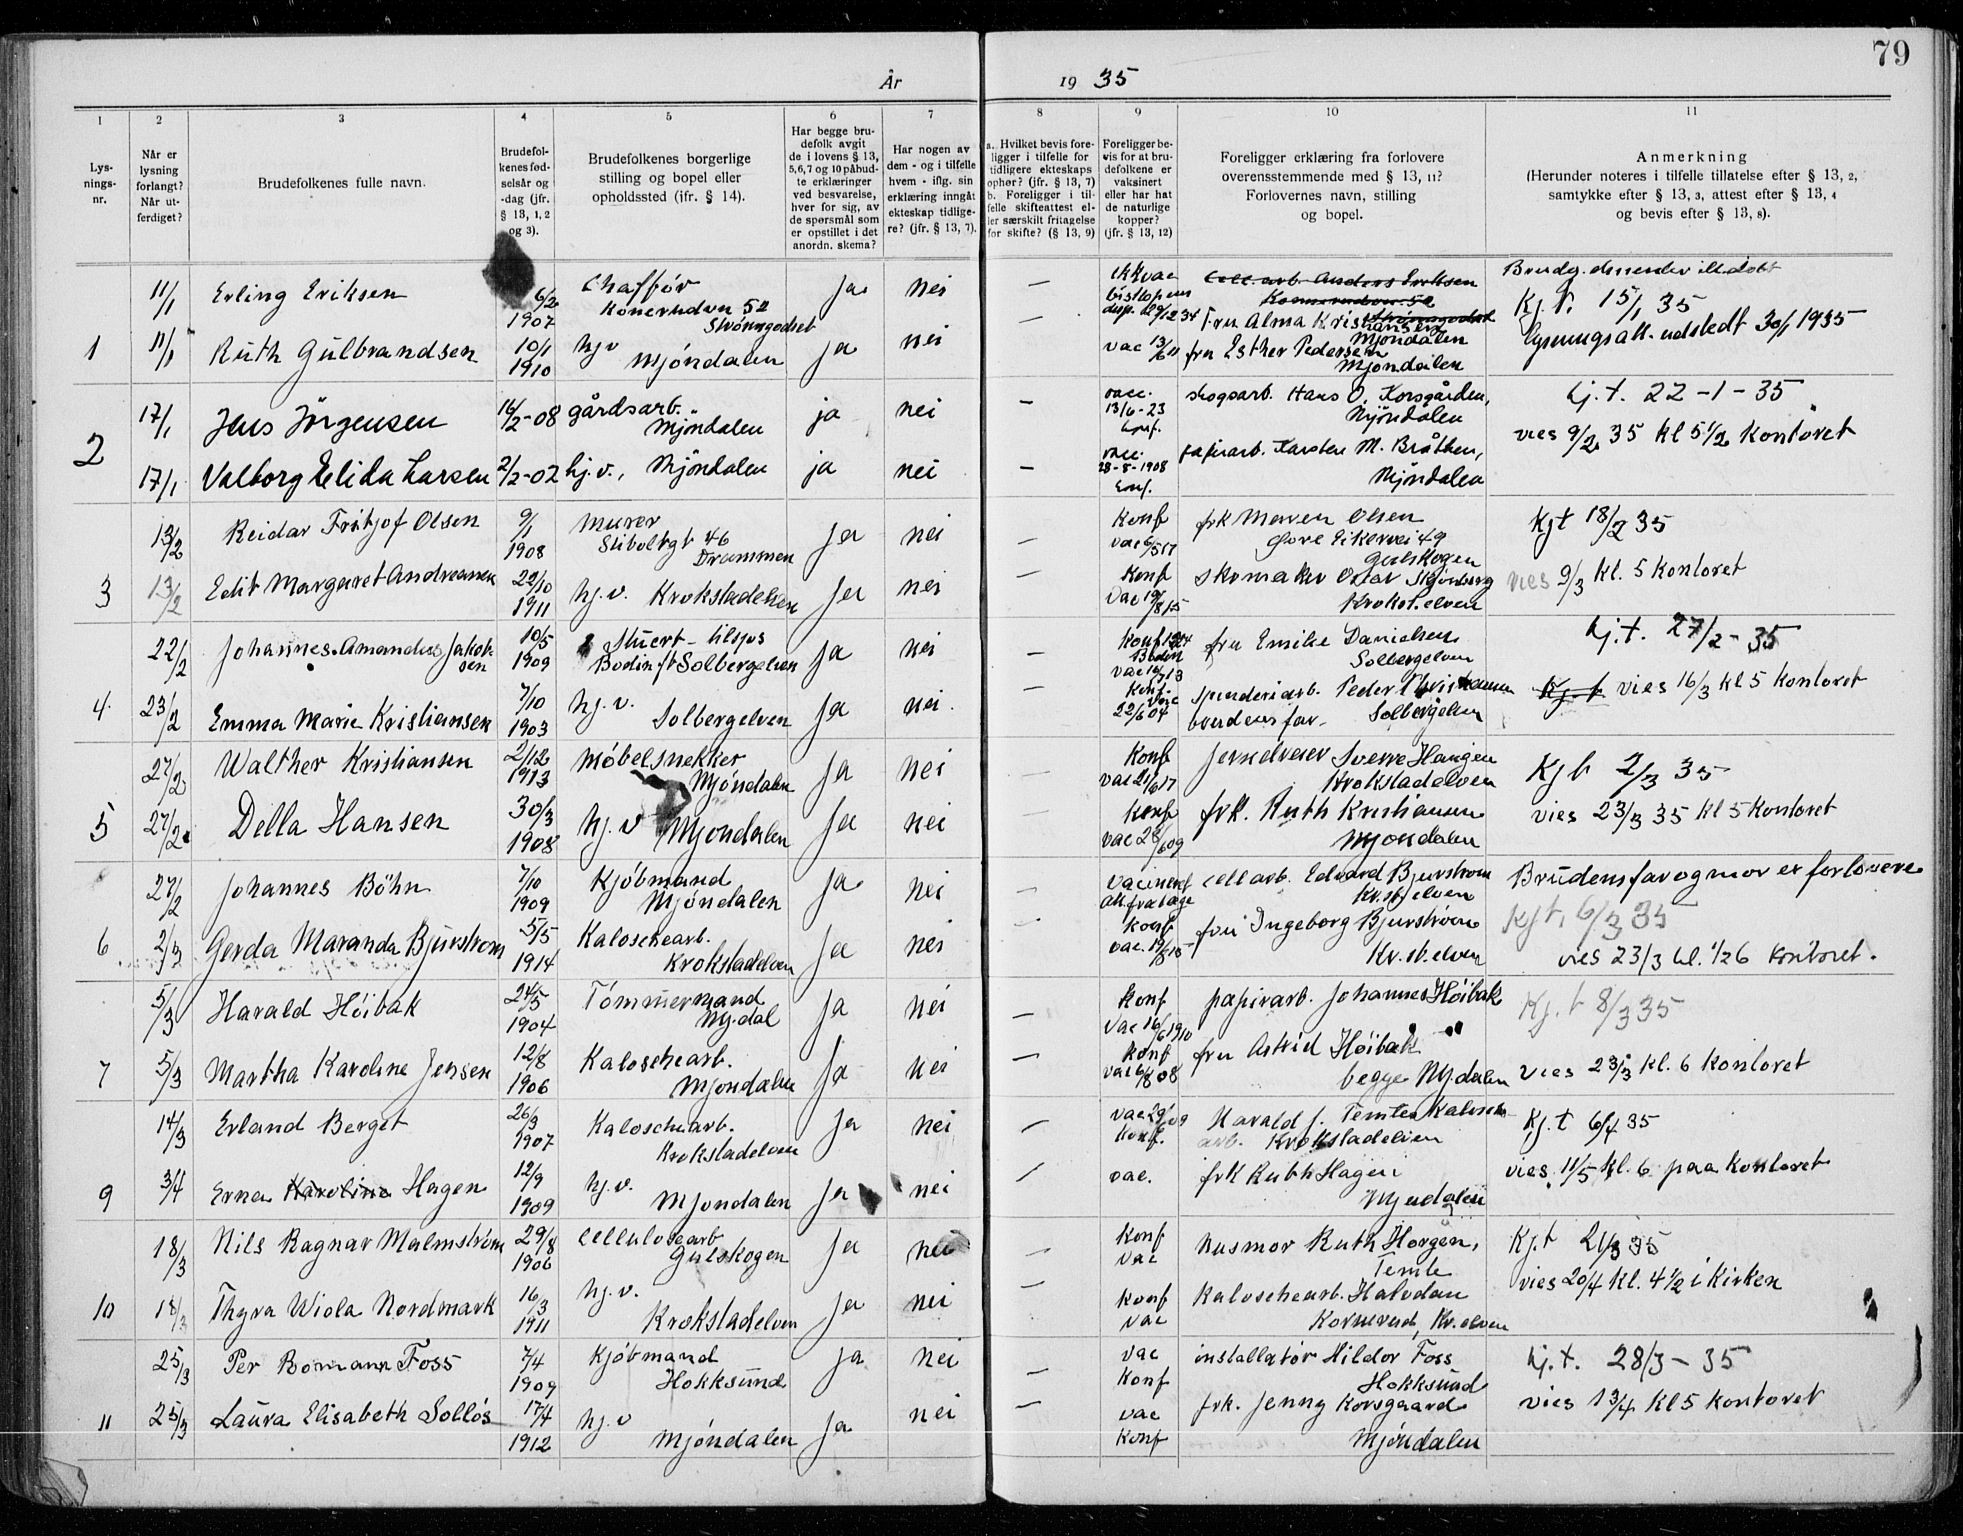 79
År 1935
1
2
3
4
5
6
7
8
9
10
11
Lys-
nings-
nr.
Når er
lysning
forlangt?
Når ut-
ferdiget?
Brudefolkenes fulle navn.
Brudefol-
kenes fød-
selsår og
-dag (jfr.
§ 13, 1, 2
og 3).
Brudefolkenes borgerlige
stilling og bopel eller
opholdssted (jfr. § 14).
Har begge bru-
defolk avgit
de i lovens § 13,
5,6,7 og 10 påbud-
te erklæringer
ved besvarelse,
hver for sig, av
de spørsmål som
er opstillet i det
anordn. skema?
Har nogen av
dem - og i tilfelle
hvem - iflg. sin
erklæring inngåt
ekteskap tidlige-
re? (jfr. § 13, 7).
a. Hvilket bevis fore-
ligger i tilfelle for
tidligere ekteskaps
ophør? (jfr. § 13, 7)
b. Foreligger i til-
felle skifteattest el-
ler særskilt fritagelse
for skifte? (§ 13, 9)
Foreligger be-
vis for at bru-
defolkene er
vaksinert
eller har hat
de naturlige
kopper?
(jfr. § 13, 12)
Foreligger erklæring fra forlovere
overensstemmende med § 13, 11?
Forlovernes navn, stilling
og bopel.
Anmerkning
(Herunder noteres i tilfelle tillatelse efter § 13, 2,
samtykke efter § 13, 3, attest efter § 13, 4
og bevis efter § 13, 8).
11/1 Erling Eriksen 6/2 1907 Chaffør
Konerudvn 52
Strømsgodset
Ja nei — ikkvac
biskopens
disp. 12 34
Cell. arb. Anders Eriksen
Konnerudvn. 52
Strømsgodset
Fru Alma Kristiansen
Mjøndalen
Kj. t. 15/1 35
1 11/1 Ruth Gulbrandsen 10/1 1910 hjv
Mjøndalen
ja nei — vac 13/6 11 fru Esther Pedersen
Mjøndalen
lysningsatt. udstedt 30/1 1935
17/1 Jens Jörgensen 14/2-08 gårdsarb.
Mjöndalen
ja nei — vacc.
13/6-23
conf.
skogsarb. Hans O. Korsgården,
Mjöndalen
kj.t. 22-1-35
vies 9/2 35 kl 5 1/2 kontoret
2 17/1 Valborg Elida Larsen 2/2-02 hj.v., Mjöndalen ja nei — vacc.
28-8-1908
conf.
papirarb. Karsten M. Bråthen,
Mjöndalen
13/2 Reidar Fritjof Olsen 9/1 1908 Murer
Stiboltgt 46
Drammen
Ja nei — Konf
vac 6/5 17
frk Maren Olsen
Øvre Eikervei 49
Gulskogen
Kjt 18/2 35
3 13/2 Edit Margaret Andreasen 22/10 1911 hj.v. Krokstadelven Ja nei — Konf
vac 19/8 15
Skomaker Olaf Skjønberg
Krokst.elven
vies 9/3 kl. 5 Kontoret
22/2 Johannes Amandus Jakob-
sen
10/5 1909 Stuert - tilsjøs
Bodin ft Solbergelven
Ja nei — Konf 1924
Bodin
vac
fru Emilie Danielsen
Solbergelven
kj.t. 27/2-35
4 23/2 Emma Marie Kristiansen 7/10 1903 hj.v.
Solbergelven
Ja nei. — Konf.
vac
22/6 04
spinderiarb. Peder Christiansen
brudens far - Solbergelven
Kj.t vies 16/3 kl 5 Kontoret
27/2 Walther Kristiansen 2/12 1913 Møbelsnekker
Mjøndalen
Ja nei — Konf
vac 21/6 17
Jerndreier Sverre Haugen
Krokstadelven
Kj t 2/3 35
5 27/2 Della Hansen 30/3 1908 hj.v Mjøndalen Ja nei — Konf
vac 28/6 09
frk. Ruth Kristiansen
Mjøndalen
vies 23/3 35 kl 5 Kontoret
27/2 Johannes Böhn 7/10 1909 Kjøbmand
Mjøndalen
Ja nei — Vacinert
att fratage
cellarb. Edvard Bjurstrøm
Kr.st.elven
Brudens far og mor er forlovere
Kjt. 6/3 35
6 2/3 Gerda Maranda Bjurstrøm 5/5 1914 Kaloschearb.
Krokstadelven
Ja nei — Konf
vac. 19/8 15
fru Ingeborg Bjurstrøm
Kr.st.elven
vies 23/3 kl. 1/2 6 Kontoret.
5/3 Harald Høibak 24/5 1904 Tømmermand
Mj.dal
Ja nei — Konf
Vac 16/6 1910
papirarb. Johannes Høibak
Kj.t 8/3 35
7 5/3 Martha Karoline Jensen 12/8 1906 Kaloschearb.
Mjøndalen
Ja nei — Konf
vac 6/8 08
fru Astrid Høibak
begge Mj.dalen
vies 23/3 kl. 6 Kontoret
14/3 Erland Berget 26/3 1907 Kaloschearb.
Krokstadelven
Ja nei — vac 29/ 09
Konf.
Harald J. Temte Kalosch
arb. Krokstadelven
Kj.t 6/4 35
9 3/4 Erna Karoline Hagen 12/9 1909 hj.v.
Mjøndalen
Ja nei — vac. frk Ruth Hagen
Mjøndalen
vies 11/5 kl. 6 paa Kontoret
18/3 Nils Ragnar Malmstrøm 29/8 1906 Cellulosearb
Gulskogen
Ja nei — Konf
vac
Husmor Ruth Horgen,
Temte
Kj.t 21/3 35
vies 20/4 kl. 4 1/2 i Kirken
10 18/3 Thyra Wiola Nordmark 16/3 1911 hj.v.
Krokstadelven
Ja nei — Konf
vac
Kaloschearb. Halvdan
Kornerud, Kr.elven
25/3 Per Bomann Foss 7/4 1909 Kjøbmand
Hokksund
Ja nei — vac
Konf
installatør Hildor Foss
Hokksund
kj.t. 28/3-35
11 25/3 Laura Elisabeth Solløs 17/4 1912 hj.v
Mjøndalen
Ja nei — vac
Konf
frk. Jenny Korsgaard
Mjøndalen
vies 13/4 kl 5 kontoret